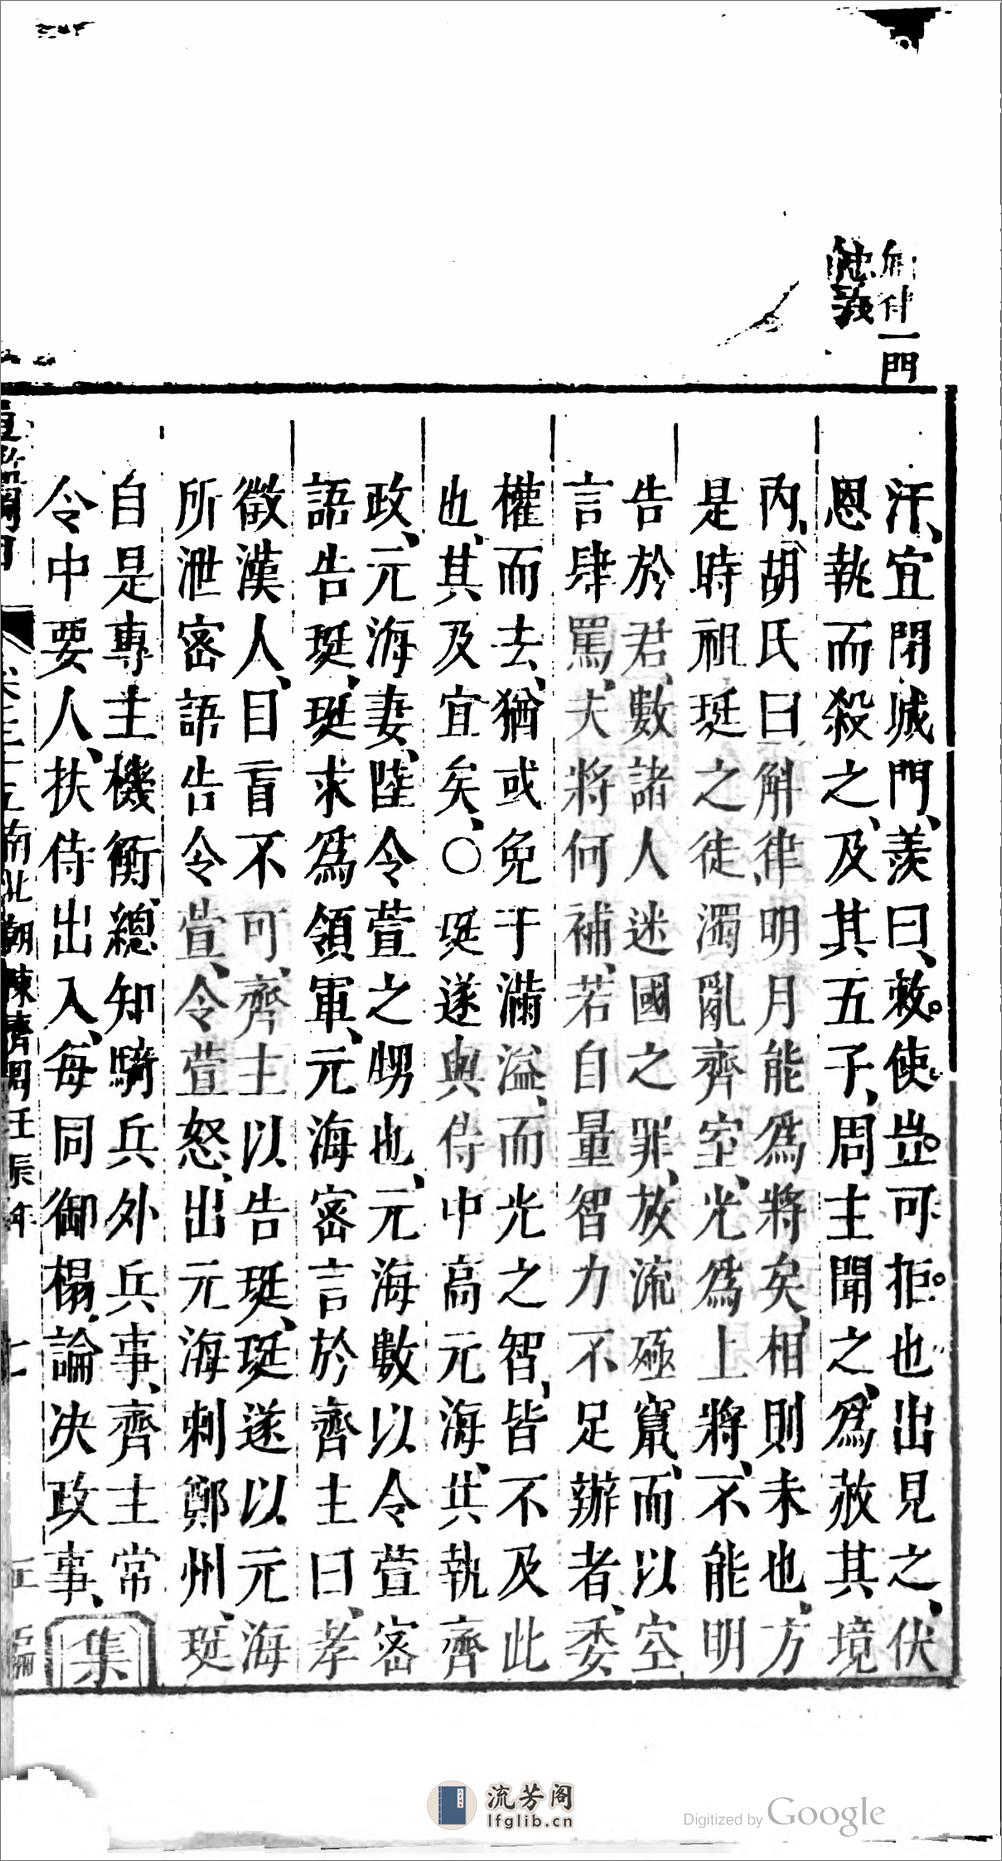 律一門
忠義
汗、宜閉城門、羨曰、敕使豈可拒也出見之、伏
恩執而殺之、及其五子、周主聞之、爲赦其境
內、胡氏曰、斛律明月能爲將矣、相則未也、方
是時祖珽之徒、濁亂齊室、光爲上將、不能明
告於君、數諸人迷國之罪、放流殛竄、而以空
言肆罵、夫將何補、若自量智力不足辦者、委
權而去、猶或免于滿溢、而光之智、皆不及此
也、其及宜矣、〇珽遂與侍中高元海、共執齊
政、元海妻、陸令萱之甥也、元海數以令萱密
語告珽、珽求爲領軍、元海密言於齊主曰、孝
徵漢人、目盲不可、齊主以告珽、珽遂以元海
所泄密語告令萱、令萱怒、出元海刺鄭州、珽
自是專主機衡、總知騎兵外兵事、齊主常
令中要人、扶侍出入、每同御榻、論決政事、集
通鑑綱目 卷三十五 南北朝陳齊周壬辰年 七 正編
流芳阁
lfglib.cn
Digitized by Google